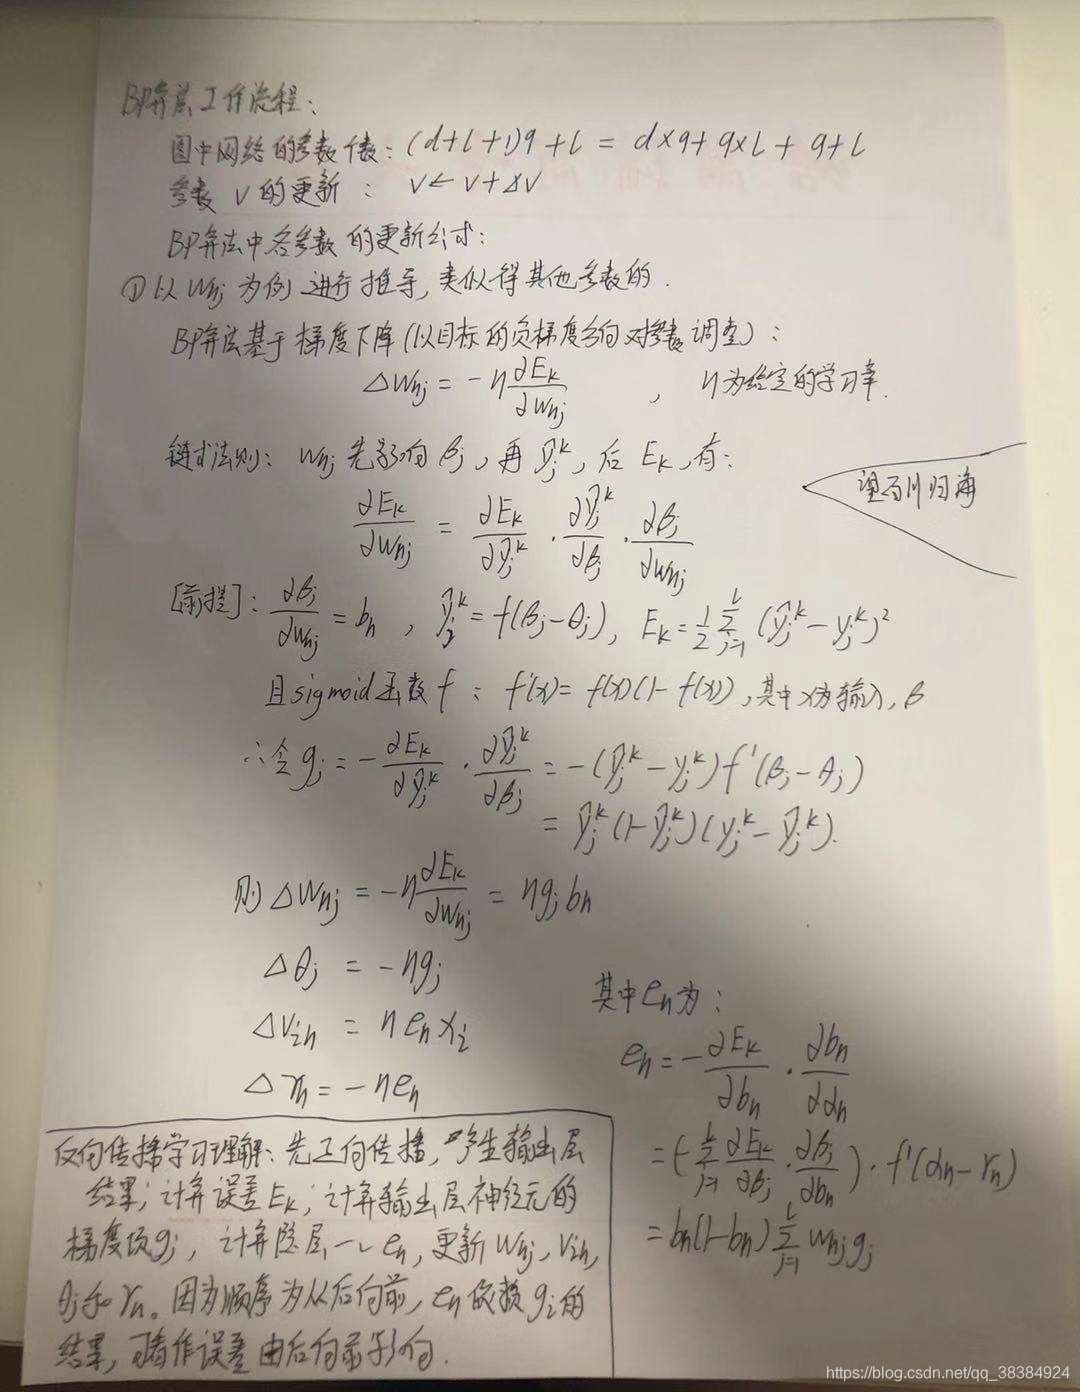 BP算法工作流程:
图中网络的参数个数: (d+l+1)q+l = d×q+q×l+q+l
参数 v 的更新: v←v+Δv
BP算法中各参数的更新公式:
①以 Whj 为例进行推导,类似得其他参数的.
BP算法基于梯度下降(以目标的负梯度方向对参数调整):
ΔWhj = -η ∂Ek/∂Whj , η为给定的学习率.
链式法则: Whj 先影响 βj, 再 ŷj^k, 后 Ek, 有:
∂Ek/∂Whj = ∂Ek/∂ŷj^k · ∂ŷj^k/∂βj · ∂βj/∂Whj
百川归海
[前提]: ∂βj/∂Whj = bh , ŷj^k = f(βj-θj), Ek = 1/2 Σ_{j=1}^{l} (ŷj^k - yj^k)²
且sigmoid函数 f : f'(x) = f(x)(1-f(x)), 其中x为输入, β
∴令 gj = -∂Ek/∂ŷj^k · ∂ŷj^k/∂βj = -(ŷj^k - yj^k) f'(βj-θj)
= ŷj^k(1-ŷj^k)(yj^k - ŷj^k).
则 ΔWhj = -η ∂Ek/∂Whj = ηgjbh
Δθj = -ηgj
Δvih = ηehxi
Δγh = -ηeh
其中eh为:
eh = -∂Ek/∂bh · ∂bh/∂αh
= (-Σ_{j=1}^{l} ∂Ek/∂βj · ∂βj/∂bh) · f'(αh-γh)
= bh(1-bh) Σ_{j=1}^{l} Whjgj
反向传播学习理解: 先正向传播, 产生输出层
结果; 计算误差Ek; 计算输出层神经元的
梯度项gj, 计算隐层 eh, 更新 Whj、Vih,
θj和γh。因为顺序为从后向前, eh依赖gj的
结果, 可看作误差由后向前影响.
https://blog.csdn.net/qq_38384924